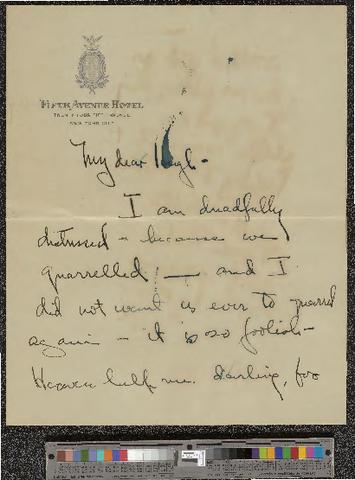 FIFTH AVENUE HOTEL
NEW YORK CITY
My dear Hugh -
I am dreadfully
distressed - because we
quarrelled! — and I
did not want us ever to quarrel
again - it is so foolish -
Heaven help me. darling, for